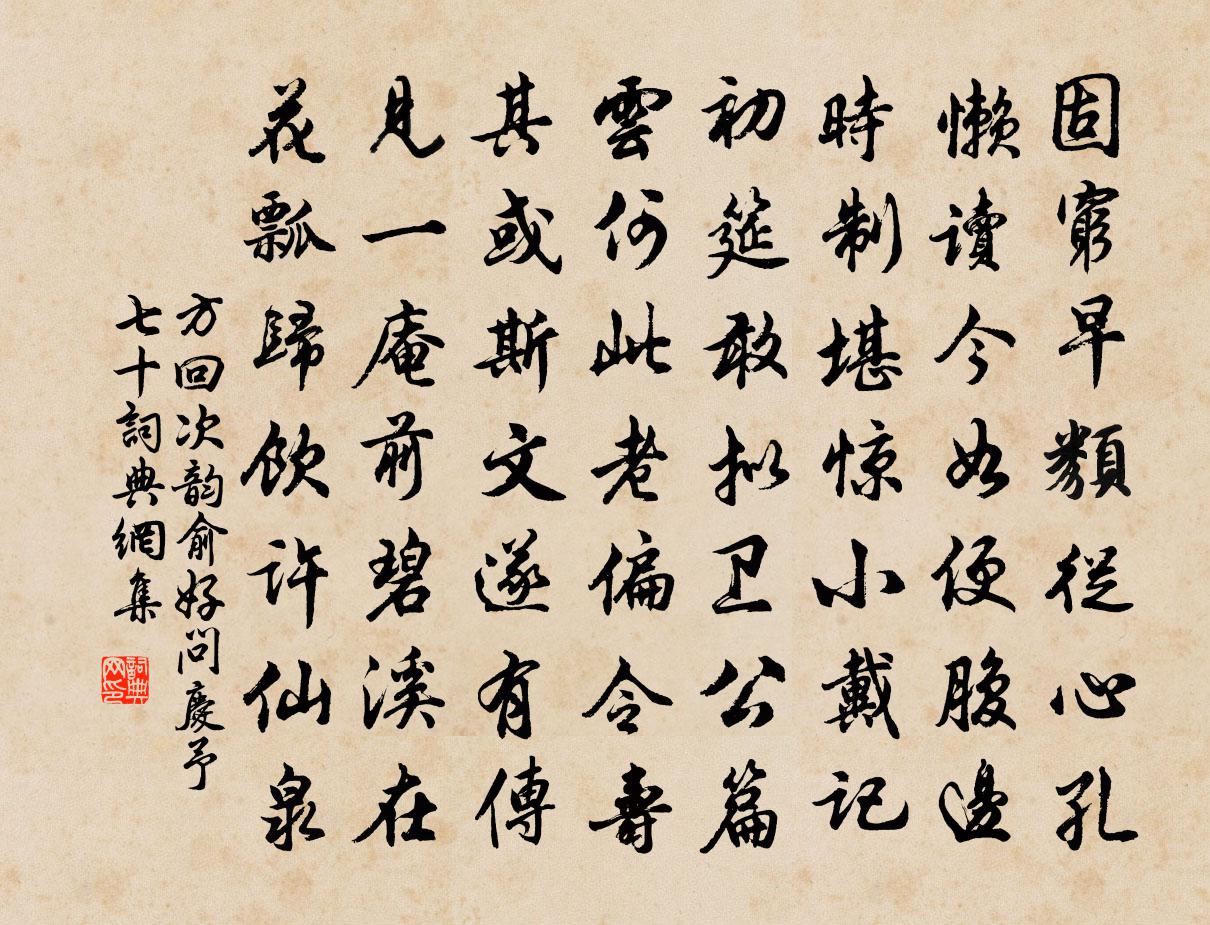 固窮早類從心孔
懶讀今如便腹邊
時制堪惊小戴記
初筵敢拟卫公篇
雲何此老偏令壽
其或斯文遂有傳
見一庵前碧溪在
花瓢歸飲許仙泉
方回次韵俞好問慶予
七十詞典網集
詞典网印